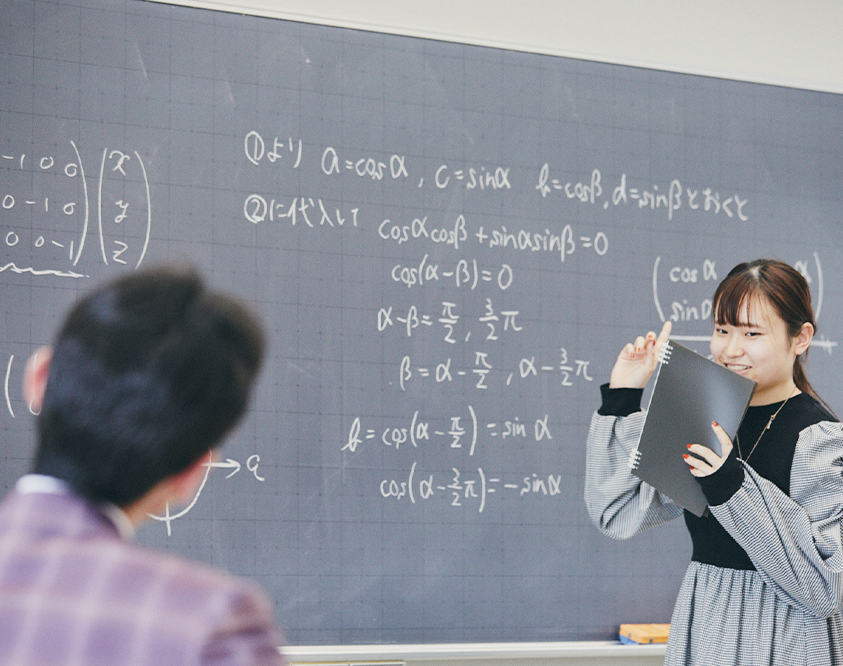 -1 0 0 x
0 -1 0 y
0 0 -1 z
①より a=cosα, c=sinα b=cosβ, d=sinβとおくと
②に代入して cosαcosβ+sinαsinβ=0
cos(α-β)=0
α-β=π/2, 3/2π
β=α-π/2, α-3/2π
b=cos(α-π/2)=sinα
cos(α-3/2π)=-sinα
cosα
a